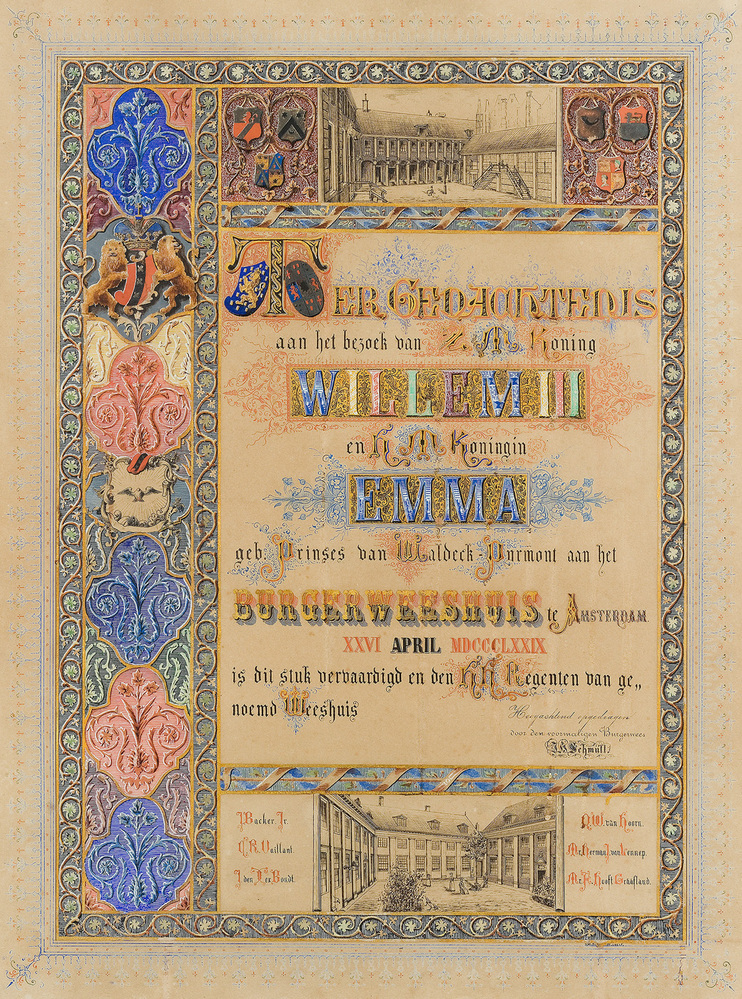 TER GEDACHTENIS
aan het bezoek van Z. M. Koning
WILLEM III
en H. M. Koningin
EMMA
geb. Prinses van Waldeck-Pyrmont aan het
BURGERWEESHUIS te AMSTERDAM.
XXVI APRIL MDCCCLXXIX
is dit stuk vervaardigd en den HH Regenten van ge„
noemd Weeshuis
Hoogachtend opgedragen
door den voormaligen Burgerwees
Schmüll.
P. Backer Jr.
C. R. Vaillant.
J. den Tex Bondt.
van Hoorn.
Mr. Herman J. van Lennep.
Hooft Graafland.